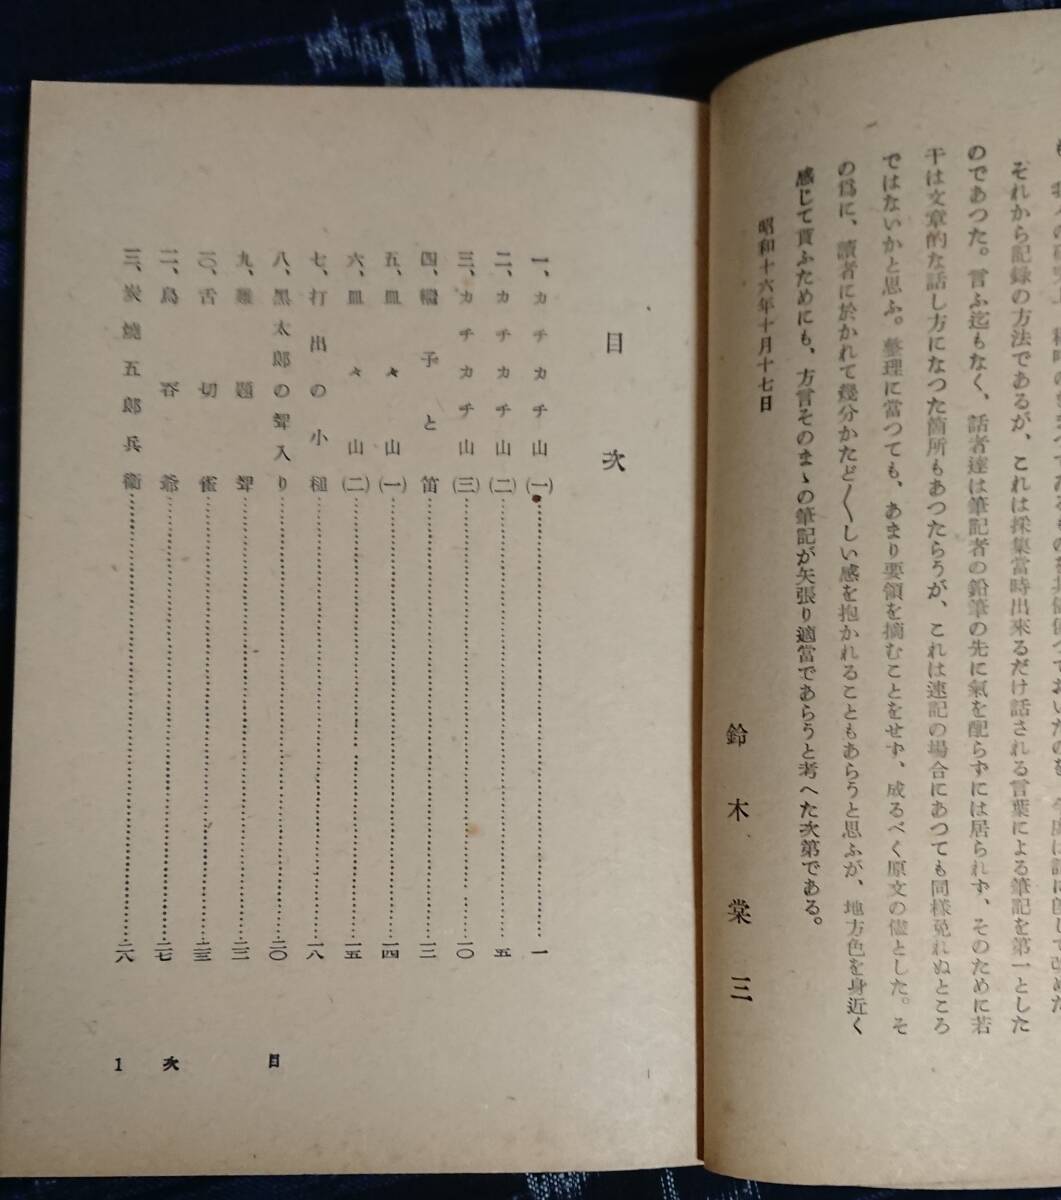 それから記録の方法であるが、これは採集當時出來るだけ話される言葉による筆記を第一とした
のであつた。言ふ迄もなく、話者達は筆記者の鉛筆の先に氣を配らずには居られず、そのために若
干は文章的な話し方になつた箇所もあつたらうが、これは速記の場合にあつても同樣免れぬところ
ではないかと思ふ。整理に當つても、あまり要領を摘むことをせず、成るべく原文の儘とした。そ
の爲に、讀者に於かれて幾分かたど〱しい感を抱かれることもあらうと思ふが、地方色を身近く
感じて貰ふためにも、方言そのまゝの筆記が矢張り適當であらうと考へた次第である。
昭和十六年十月十七日
鈴木棠三
目次
一、カチカチ山(一)……一
二、カチカチ山(二)……五
三、カチカチ山(三)……一〇
四、繼子と笛……一二
五、皿々山(一)……一四
六、皿々山(二)……一五
七、打出の小槌……一八
八、黑太郎の聟入り……二〇
九、難題聟……二二
一〇、舌切雀……二三
一一、鳥呑爺……二七
一二、炭燒五郎兵衞……二八
目次 1